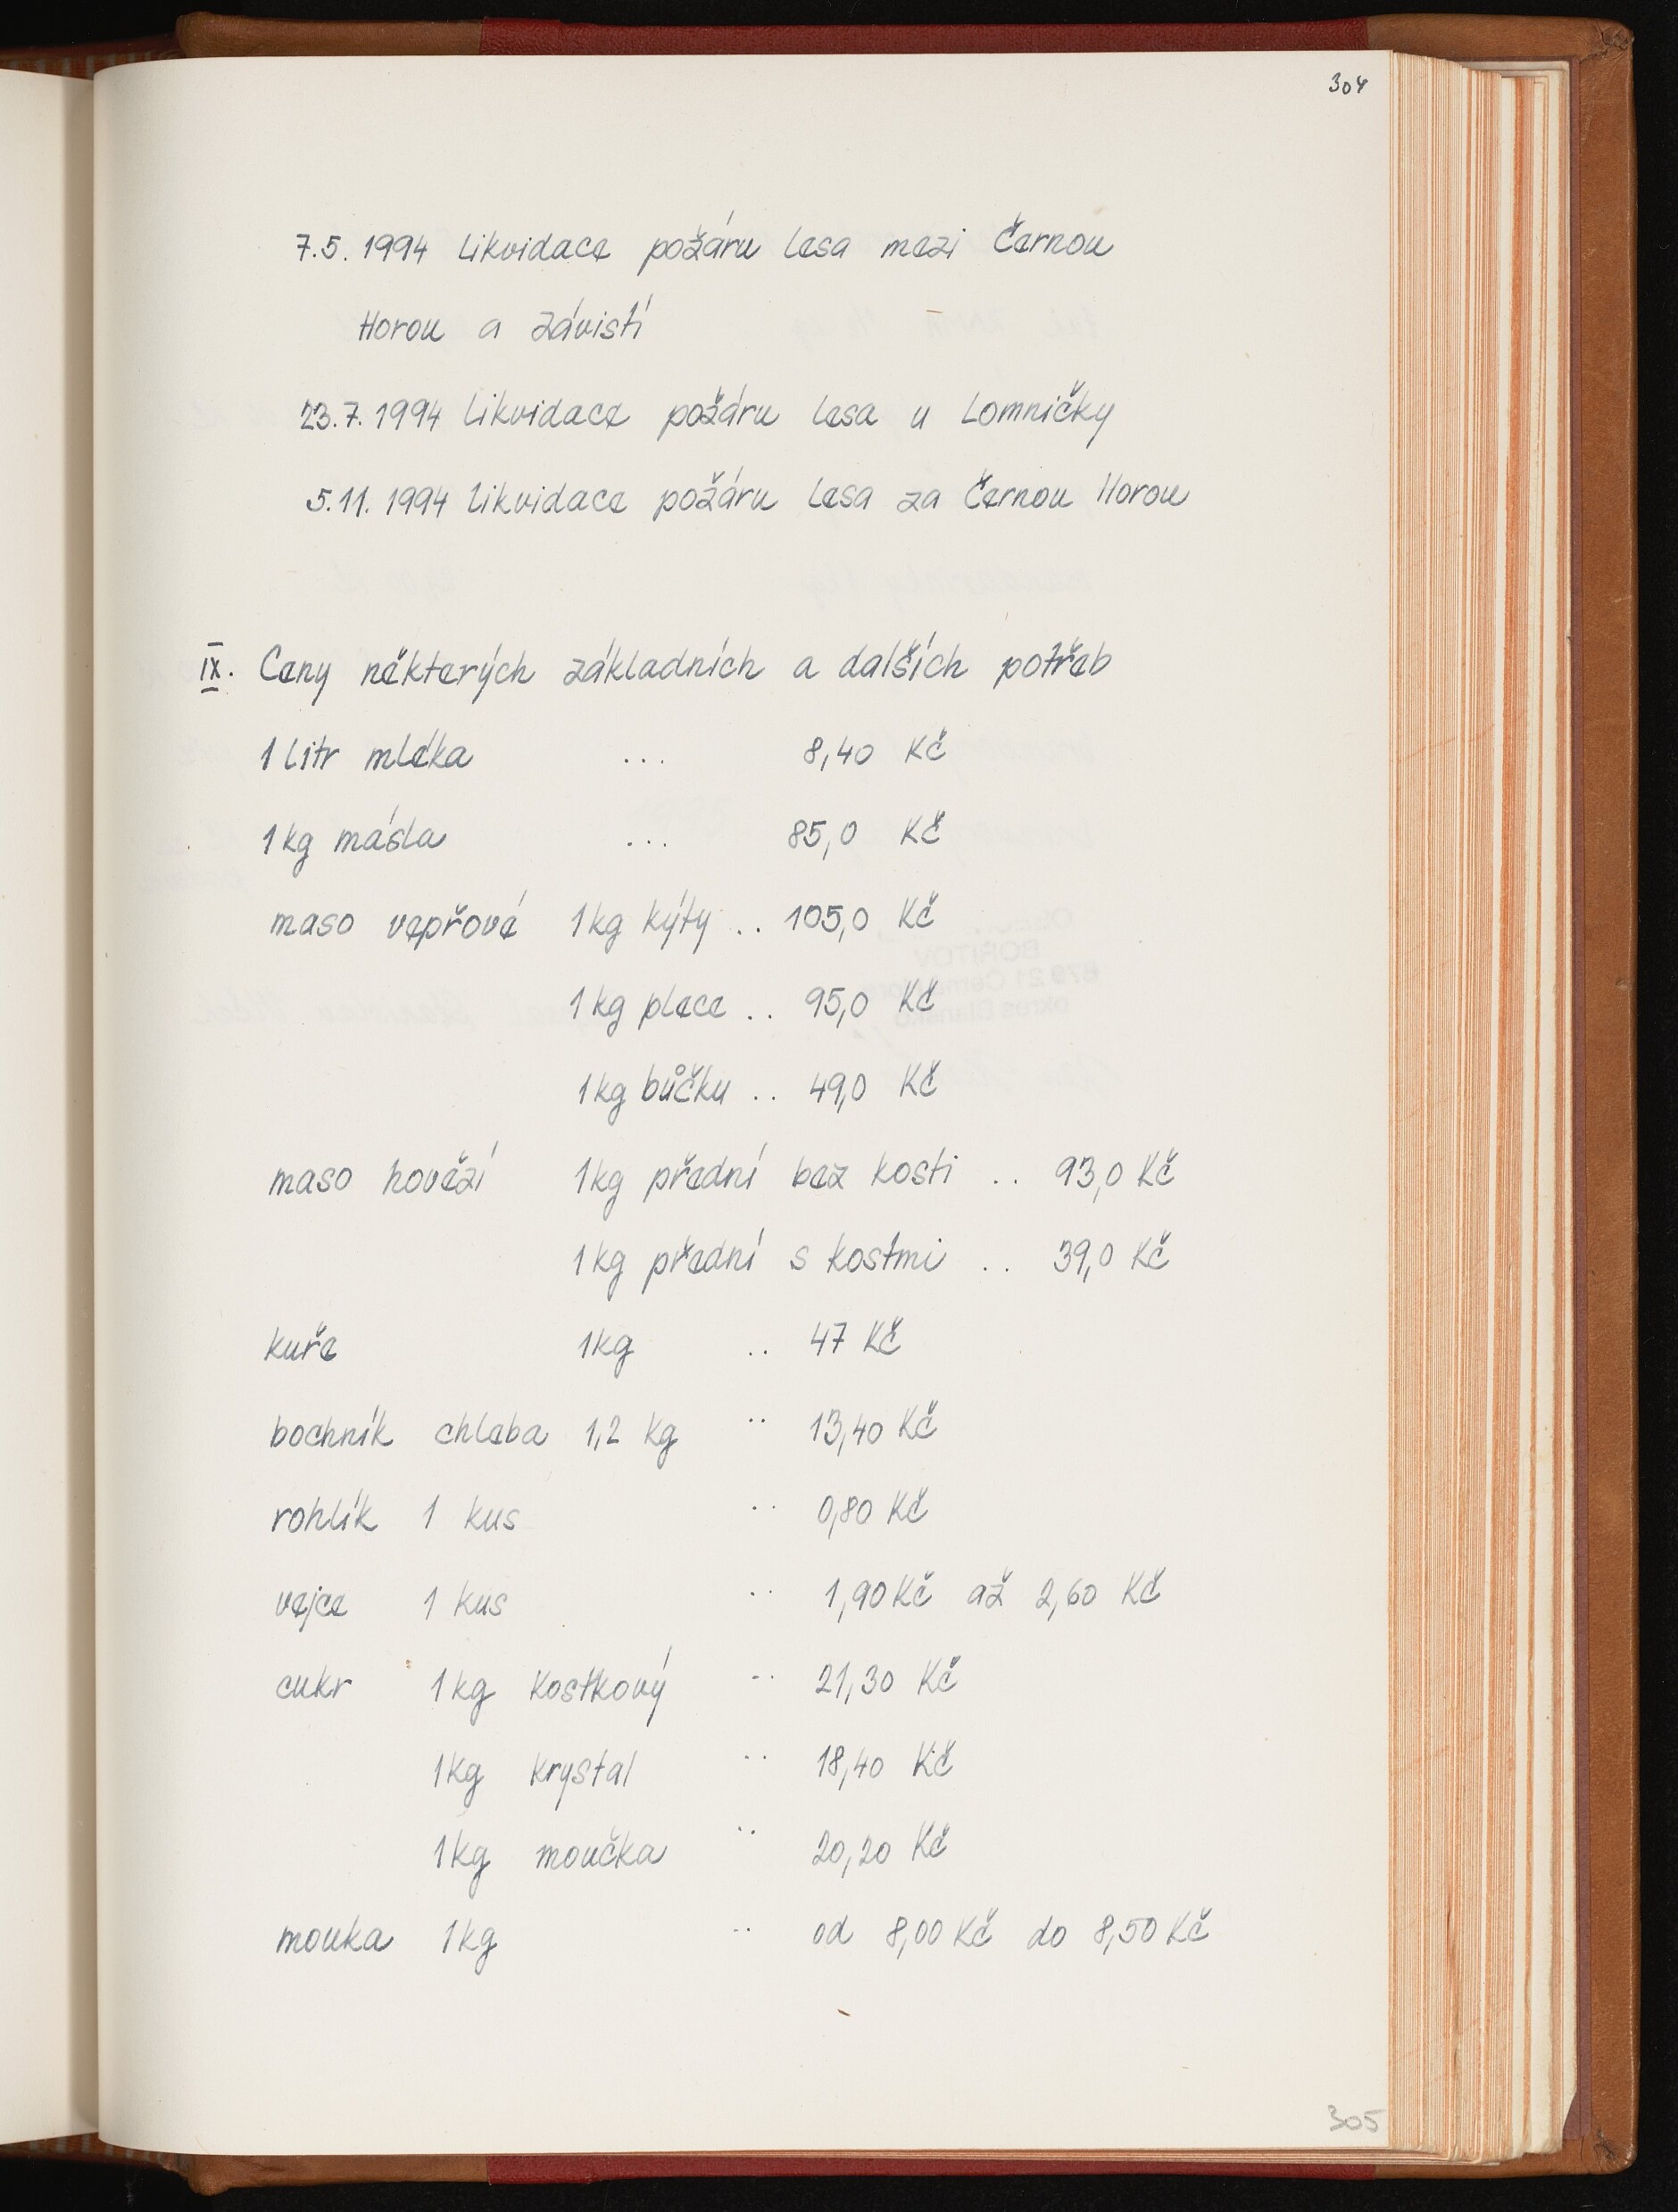 304
7.5. 1994 likvidace požáru lesa mezi Černou
Horou a Závistí
23.7. 1994 likvidace požáru lesa u Lomničky
5.11. 1994 likvidace požáru lesa za Černou Horou
IX. Ceny některých základních a dalších potřeb
1 litr mléka ... 8,40 Kč
1 kg másla ... 85,0 Kč
maso vepřové 1 kg kýty .. 105,0 Kč
1 kg plece .. 95,0 Kč
1 kg bůčku .. 49,0 Kč
maso hovězí 1 kg přední bez kosti .. 93,0 Kč
1 kg přední s kostmi .. 39,0 Kč
kuře 1 kg .. 47 Kč
bochník chleba 1,2 kg .. 13,40 Kč
rohlík 1 kus .. 0,80 Kč
vejce 1 kus .. 1,90 Kč až 2,60 Kč
cukr 1 kg kostkový .. 21,30 Kč
1 kg krystal .. 18,40 Kč
1 kg moučka .. 20,20 Kč
mouka 1 kg .. od 8,00 Kč do 8,50 Kč
305